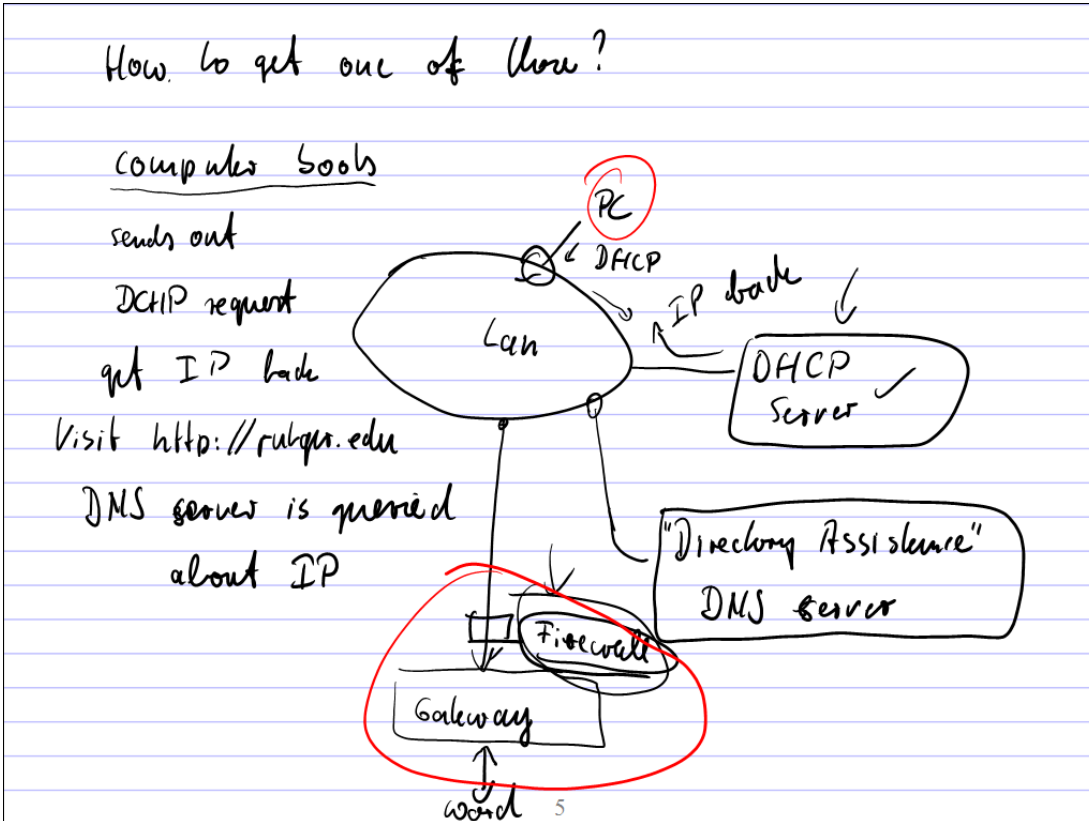 How to get one of those?
computer boots
sends out
DCHP request
get IP back
Visit http://rutgers.edu
DNS server is queried
about IP
PC
DHCP
IP back
Lan
DHCP
Server
"Directory Assistence"
DNS server
Firewall
Gateway
world
5